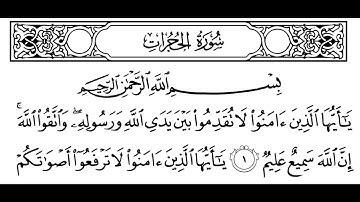 سُورَةُ الحُجُرَاتِ
بِسْمِ ٱللَّهِ ٱلرَّحْمَٰنِ ٱلرَّحِيمِ
يَٰٓأَيُّهَا ٱلَّذِينَ ءَامَنُوا۟ لَا تُقَدِّمُوا۟ بَيْنَ يَدَىِ ٱللَّهِ وَرَسُولِهِۦ ۖ وَٱتَّقُوا۟ ٱللَّهَ ۚ
إِنَّ ٱللَّهَ سَمِيعٌ عَلِيمٌ ١ يَٰٓأَيُّهَا ٱلَّذِينَ ءَامَنُوا۟ لَا تَرْفَعُوٓا۟ أَصْوَٰتَكُمْ